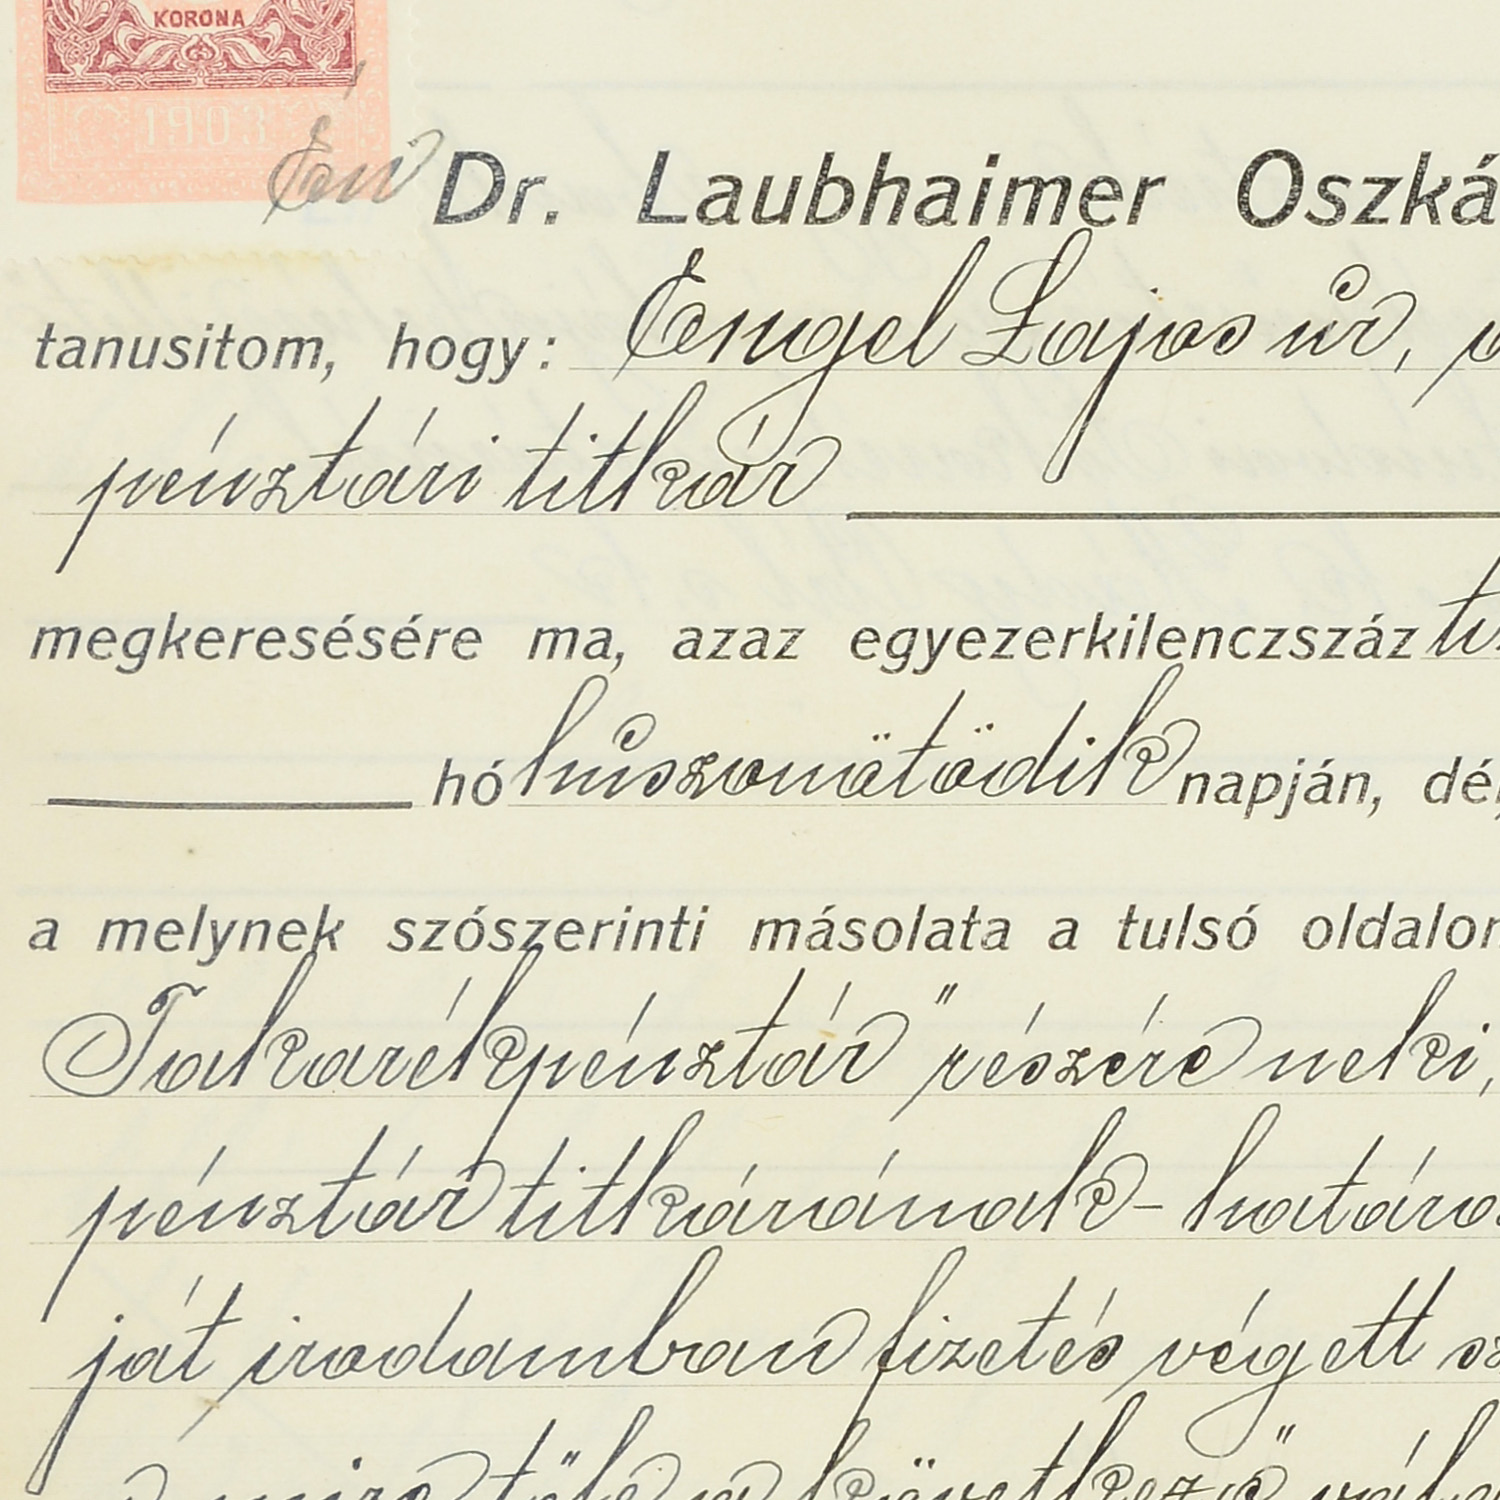 KORONA
1903
Én Dr. Laubhaimer Oszká
tanusitom, hogy: Engel Lajos úr,
pénztári titkár
megkeresésére ma, azaz egyezerkilenczszáz ti
hó huszonötödik napján, dél
a melynek szószerinti másolata a tulsó oldalon
Takarékpénztár" részére neki,
pénztár titkárának - határo
ját irodamban fizetés végett sz
mire tőle a következő vála